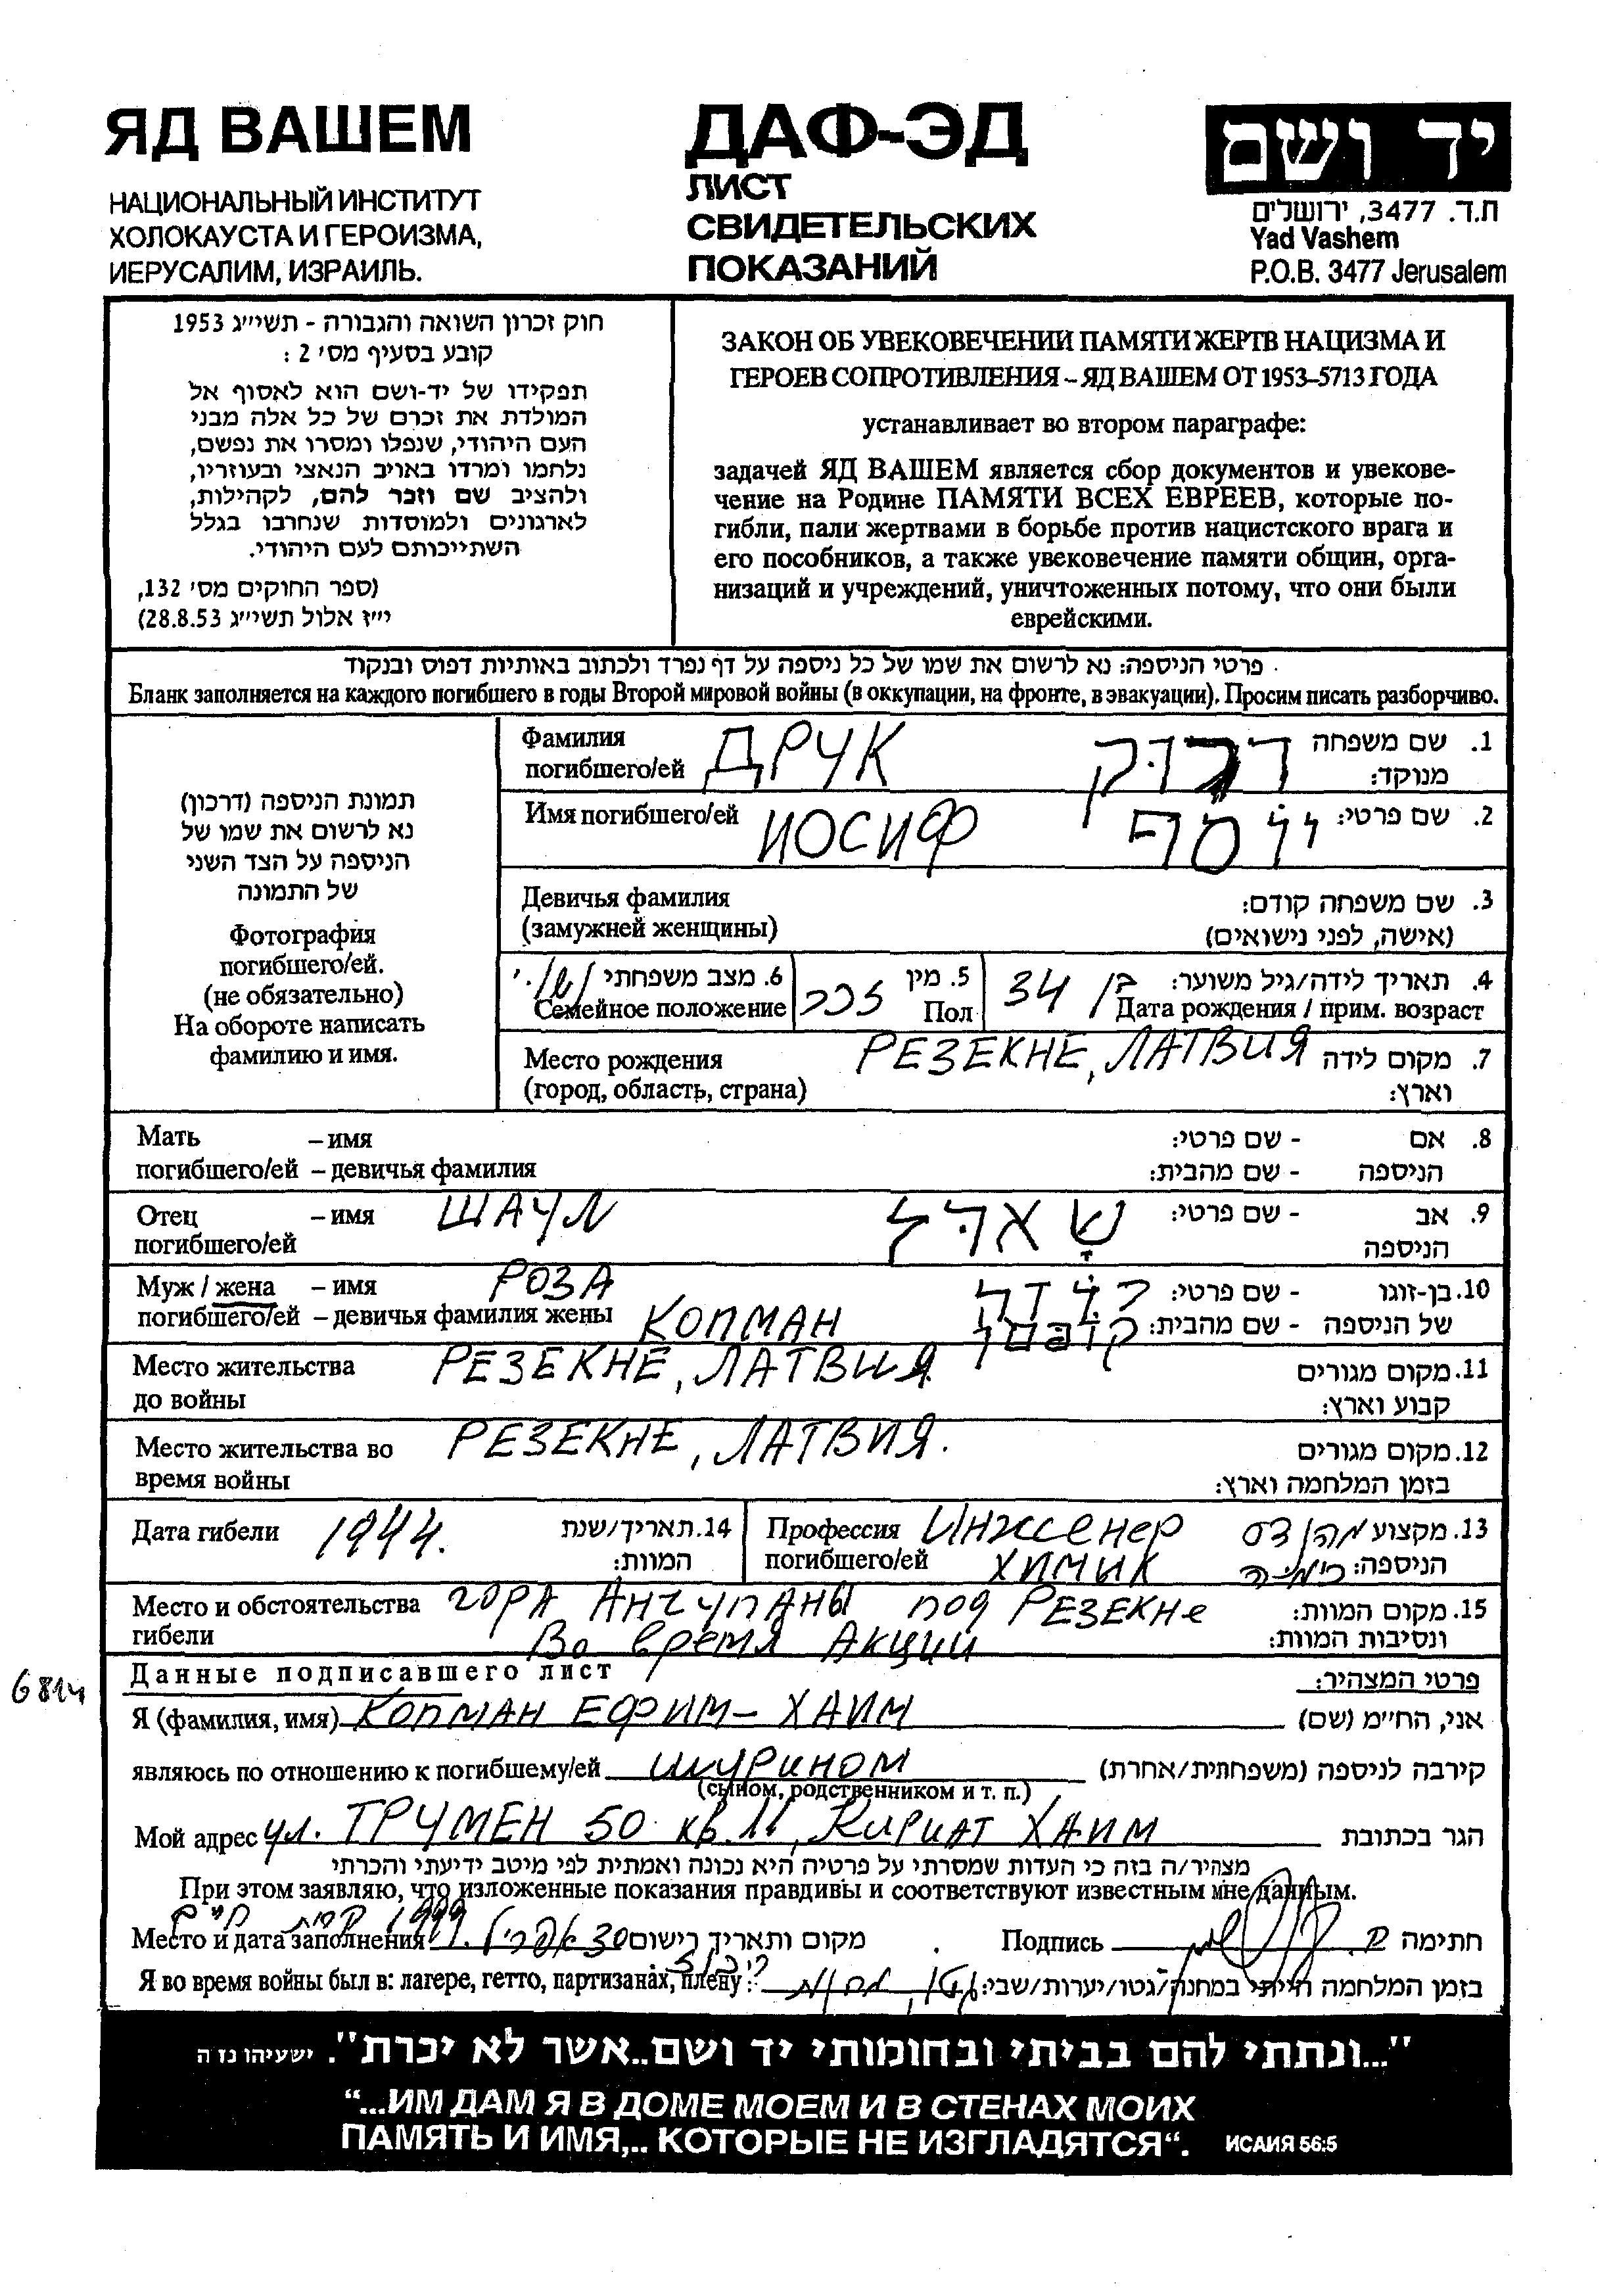 ЯД ВАШЕМ
НАЦИОНАЛЬНЫЙ ИНСТИТУТ
ХОЛОКАУСТА И ГЕРОИЗМА,
ИЕРУСАЛИМ, ИЗРАИЛЬ.
ДАФ-ЭД
ЛИСТ
СВИДЕТЕЛЬСКИХ
ПОКАЗАНИЙ
יד ושם
ת.ד. 3477, ירושלים
Yad Vashem
P.O.B. 3477 Jerusalem
חוק זכרון השואה והגבורה - תשי״ג 1953
קובע בסעיף מס׳ 2 :
תפקידו של יד-ושם הוא לאסוף אל
המולדת את זכרם של כל אלה מבני
העם היהודי, שנפלו ומסרו את נפשם,
נלחמו ומרדו באויב הנאצי ובעוזריו,
ולהציב שם וזכר להם, לקהילות,
לארגונים ולמוסדות שנחרבו בגלל
השתייכותם לעם היהודי.
(ספר החוקים מס׳ 132,
י״ז אלול תשי״ג 28.8.53)
ЗАКОН ОБ УВЕКОВЕЧЕНИИ ПАМЯТИ ЖЕРТВ НАЦИЗМА И
ГЕРОЕВ СОПРОТИВЛЕНИЯ – ЯД ВАШЕМ ОТ 1953–5713 ГОДА
устанавливает во втором параграфе:
задачей ЯД ВАШЕМ является сбор документов и увекове-
чение на Родине ПАМЯТИ ВСЕХ ЕВРЕЕВ, которые по-
гибли, пали жертвами в борьбе против нацистского врага и
его пособников, а также увековечение памяти общин, орга-
низаций и учреждений, уничтоженных потому, что они были
еврейскими.
פרטי הניספה: נא לרשום את שמו של כל ניספה על דף נפרד ולכתוב באותיות דפוס ובנקוד
Бланк заполняется на каждого погибшего в годы Второй мировой войны (в оккупации, на фронте, в эвакуации). Просим писать разборчиво.
תמונת הניספה (דרכון)
נא לרשום את שמו של
הניספה על הצד השני
של התמונה
Фотография
погибшего/ей.
(не обязательно)
На обороте написать
фамилию и имя.
Фамилия ДРУК דרוק 1. שם משפחה
погибшего/ей מנוקד:
Имя погибшего/ей ИОСИФ יוסף 2. שם פרטי:
Девичья фамилия 3. שם משפחה קודם:
(замужней женщины) (אישה, לפני נישואים)
6. מצב משפחתי נשוי 5. מין זכר 34 בן 4. תאריך לידה/גיל משוער:
Семейное положение Пол Дата рождения / прим. возраст
Место рождения РЕЗЕКНЕ, ЛАТВИЯ 7. מקום לידה
(город, область, страна) וארץ:
Мать – имя - שם פרטי: אם 8.
погибшего/ей – девичья фамилия - שם מהבית: הניספה
Отец – имя ШАУЛ שאול - שם פרטי: אב 9.
погибшего/ей הניספה
Муж / жена – имя РОЗА רוזה - שם פרטי: 10. בן-זוגו
погибшего/ей – девичья фамилия жены КОПМАН קופמן - שם מהבית: של הניספה
Место жительства РЕЗЕКНЕ, ЛАТВИЯ 11. מקום מגורים
до войны קבוע וארץ:
Место жительства во РЕЗЕКНЕ, ЛАТВИЯ. 12. מקום מגורים
время войны בזמן המלחמה וארץ:
Дата гибели 1944. 14. תאריך/שנת המוות:
Профессия Инженер מהנדס 13. מקצוע
погибшего/ей химик כימיה הניספה:
Место и обстоятельства гора Анчупаны под Резекне 15. מקום המוות:
гибели Во время Акции ונסיבות המוות:
6814
Данные подписавшего лист פרטי המצהיר:
Я (фамилия, имя) КОПМАН ЕФИМ – ХАИМ אני, הח״מ (שם)
являюсь по отношению к погибшему/ей шурином קירבה לניספה (משפחתית/אחרת)
(сыном, родственником и т. п.)
Мой адрес ул. ТРУМЕН 50 кв. 11, Кириат ХАИМ הגר בכתובת
מצהיר/ה בזה כי העדות שמסרתי על פרטיה היא נכונה ואמתית לפי מיטב ידיעתי והכרתי
При этом заявляю, что изложенные показания правдивы и соответствуют известным мне данным.
Место и дата заполнения קרית חיים 30 אפריל 1999 מקום ותאריך רישום Подпись חתימה
Я во время войны был в: лагере, гетто, партизанах, плену? גטו, מחנות בזמן המלחמה הייתי במחנה/גטו/יערות/שבי:
"...ונתתי להם בביתי ובחומותי יד ושם..אשר לא יכרת". ישעיהו נז ה
“...ИМ ДАМ Я В ДОМЕ МОЕМ И В СТЕНАХ МОИХ
ПАМЯТЬ И ИМЯ,.. КОТОРЫЕ НЕ ИЗГЛАДЯТСЯ“. ИСАИЯ 56:5